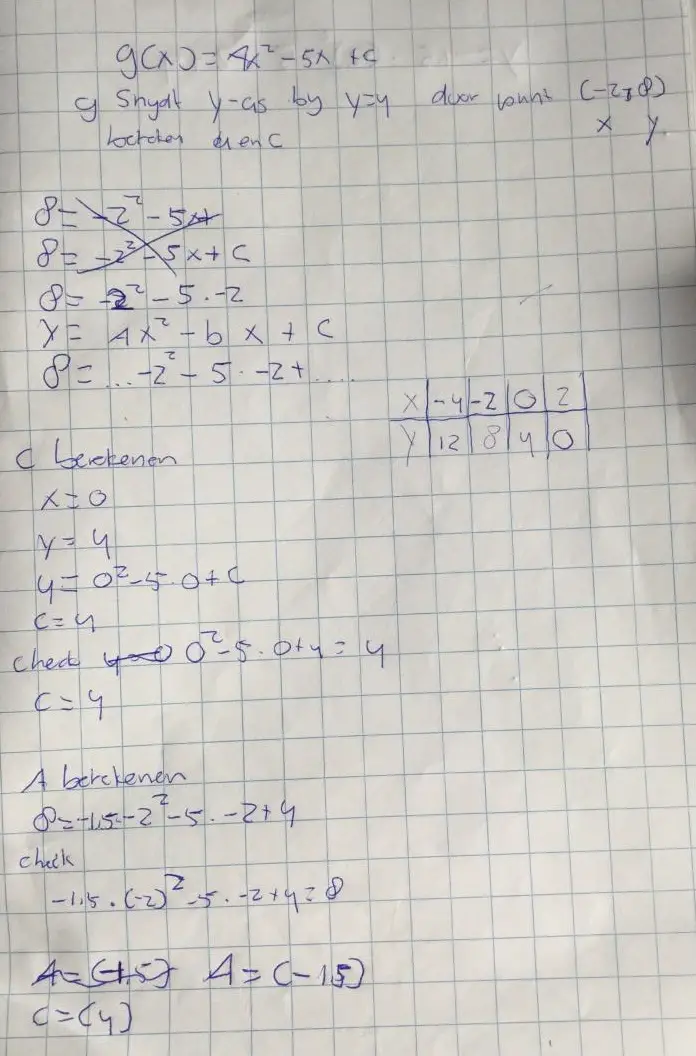 g(x) = Ax² - 5x + c
g Snydt y-as by y=4 door (-2,8)
x y
A en C
8 = -2² - 5x+
8 = -2² - 5x + C
8 = -2² - 5 · -2
Y = Ax² - b x + C
8 = ... -2² - 5 · -2 + ....
X -4 -2 0 2
Y 12 8 4 0
C berekenen
x = 0
y = 4
4 = 0² - 5 · 0 + C
C = 4
Check 0² - 5 · 0 + 4 = 4
C = 4
A berekenen
8 = -1,5 · -2² - 5 · -2 + 4
check
-1,5 · (-2)² - 5 · -2 + 4 = 8
A = (-1,5) A = (-1,5)
C = (4)